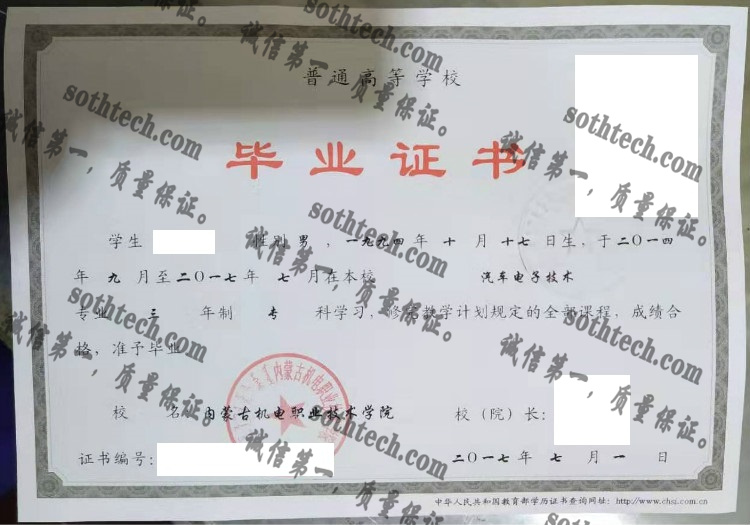 普通高等学校
毕业证书
学生 性别 男 ，一九九四 年 十 月 十七 日生，于二〇一四
年 九 月至二〇一七年 七 月在本校 汽车电子技术
专业 三 年制 专 科学习，修完教学计划规定的全部课程，成绩合
格，准予毕业
校 名：内蒙古机电职业技术学院 校（院）长：
证书编号： 二〇一七年 七 月 一 日
中华人民共和国教育部学历证书查询网址：http://www.chsi.com.cn
内蒙古机电职业
sothtech.com
诚信第一，质量保证。
sothtech.com
诚信第一，质量保证。
sothtech.com
诚信第一，质量保证。
sothtech.com
诚信第一，质量保证。
sothtech.com
诚信第一，质量保证。
sothtech.com
诚信第一，质量保证。
sothtech.com
诚信第一，质量保证。